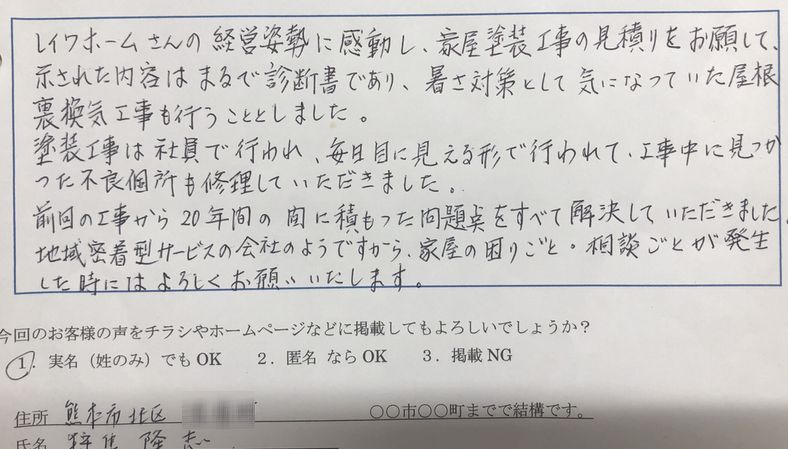 レイワホームさんの経営姿勢に感動し、家屋塗装工事の見積りをお願して、
示された内容はまるで診断書であり、暑さ対策として気になっていた屋根
裏換気工事も行うこととしました。
塗装工事は社員で行われ、毎日目に見える形で行われて、工事中に見つか
った不良個所も修理していただきました。
前回の工事から20年間の間に積もった問題点をすべて解決していただきました。
地域密着型サービスの会社のようですから、家屋の困りごと・相談ごとが発生
した時にはよろしくお願いいたします。
今回のお客様の声をチラシやホームページなどに掲載してもよろしいでしょうか?
1. 実名(姓のみ)でもOK 2. 匿名 ならOK 3. 掲載NG
住所 熊本市北区 〇〇市〇〇町までで結構です。
氏名 隆志